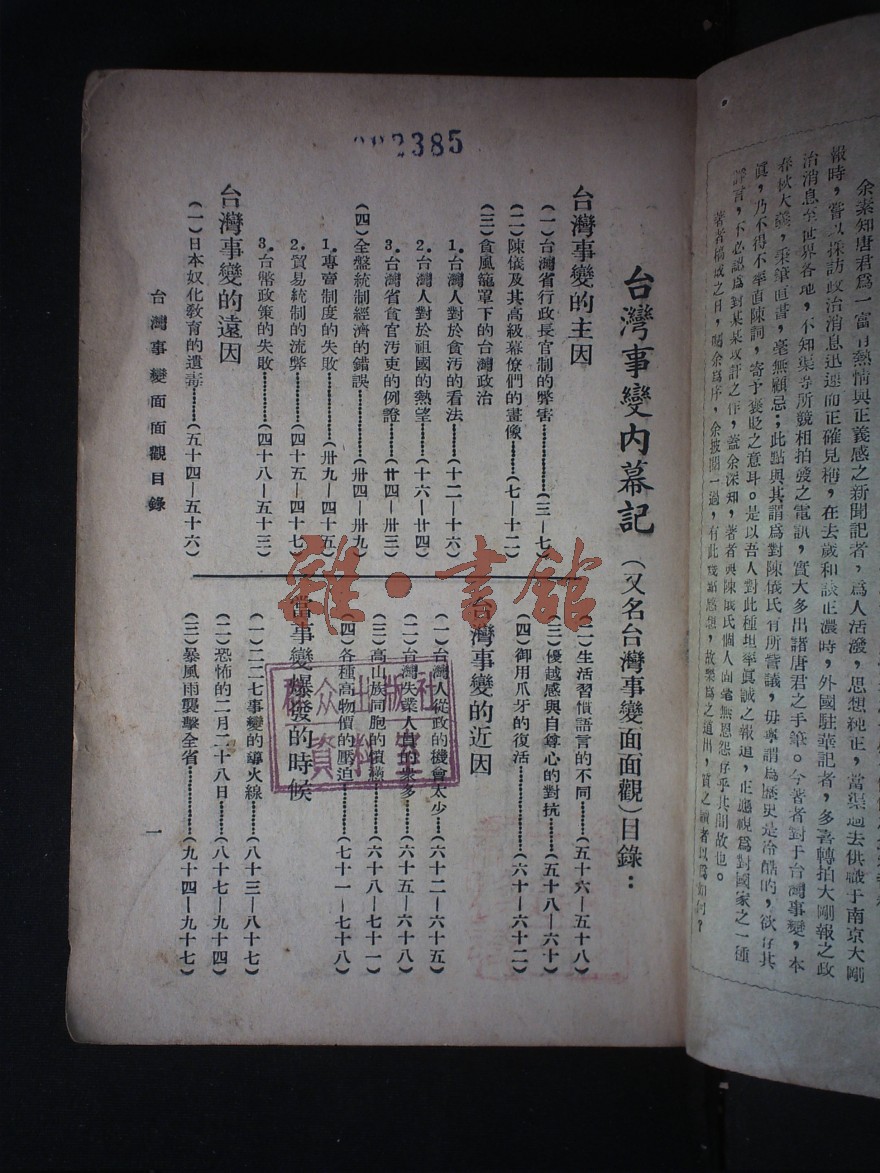 余素知唐君爲一富有熱情與正義感之新聞記者，爲人活潑，思想純正，當渠過去供職于南京大剛
報時，嘗以採訪政治消息迅速而正確見稱，在去歲和談正濃時，外國駐華記者，多喜轉拍大剛報之政
治消息至世界各地，不知渠等所競相拍發之電訊，實大多出諸唐君之手筆。今著者對于台灣事變，本
春秋大義，秉筆直書，毫無顧忌；此點與其謂爲對陳儀氏有所訾議，毋寧謂爲歷史是冷酷的，欲存其
眞，乃不得不率直陳詞，寄予褒貶之意耳。是以吾人對此種坦率眞誠之報道，正應視爲對國家之一種
諍言，不必認爲對某某攻訐之作，蓋余深知，著者與陳儀氏個人固毫無恩怨存乎其間故也。
著者稿成之日，囑余爲序，余披閱一過，有此幾點感想，故樂爲之道出，質之讀者以爲如何？
2385
台灣事變內幕記（又名台灣事變面面觀）目錄：
台灣事變的主因
（一）台灣省行政長官制的弊害……（三—七）
（二）陳儀及其高級幕僚們的畫像……（七—十二）
（三）貪風籠罩下的台灣政治
1.台灣人對於貪汚的看法……（十二—十六）
2.台灣人對於祖國的熱望……（十六—廿四）
3.台灣省貪官汚吏的例證……（廿四—卅三）
（四）全盤統制經濟的錯誤……（卅四—卅九）
1.專賣制度的失敗……（卅九—四十五）
2.貿易統制的流弊……（四十五—四十七）
3.台幣政策的失敗……（四十八—五十三）
台灣事變的遠因
（一）日本奴化敎育的遺毒……（五十四—五十六）
（二）生活習慣語言的不同……（五十六—五十八）
（三）優越感與自尊心的對抗……（五十八—六十）
（四）御用爪牙的復活……（六十—六十二）
台灣事變的近因
（一）台灣人從政的機會太少……（六十二—六十五）
（二）台灣失業人員的衆多……（六十五—六十八）
（三）高山族同胞的憤懣……（六十八—七十一）
（四）各種高物價的壓迫……（七十一—七十八）
當事變爆發的時候
（一）二二七事變的導火線……（八十三—八十七）
（二）恐怖的二月二十八日……（八十七—九十四）
（三）暴風雨襲擊全省……（九十四—九十七）
台灣事變面面觀目錄
一
雜·書館
衆出版社
資料室